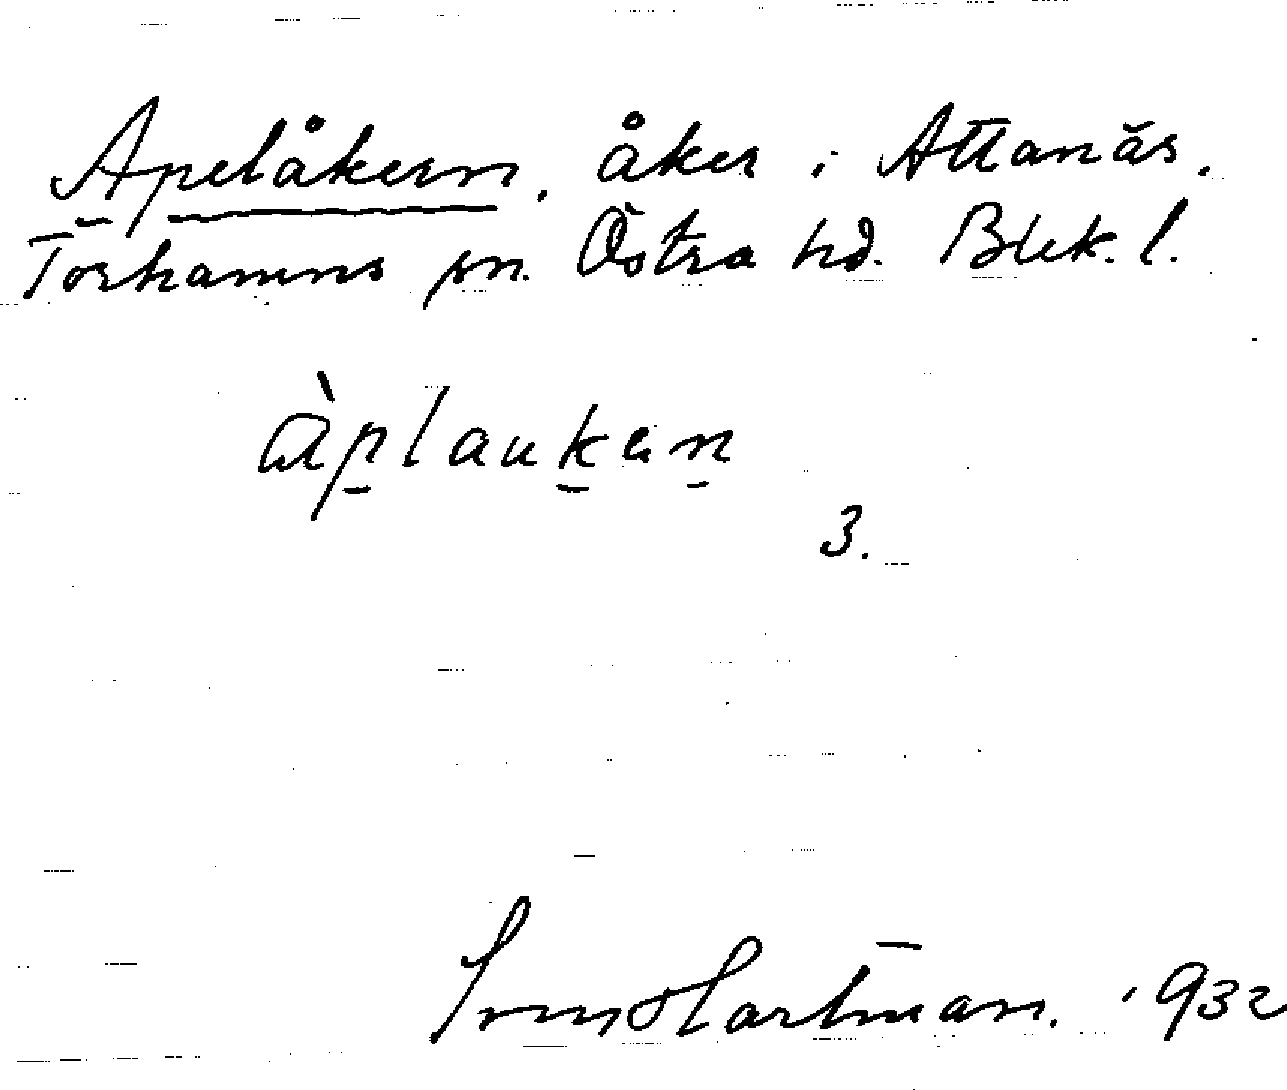 Apelåkern, åker i Attanäs,
Torhamns sn. Östra hd. Blek. l.
àplauken
3.
Sven Hartman. 1932